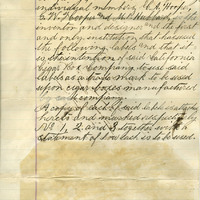 individual members C. H. Hooper,
C. W. Hooper and M. L. are the
inventor and designer and the first
and only institution that has used
the following labels and that it
is the intention of said California
Cigar Box Company to use said
labels as a trade mark to be used
upon cigar boxes manufactured
company.
A copy of each of said labels is attached
hereto and marked respectively
No 1, 2 and 3 together with a
statement of how each is to be used.